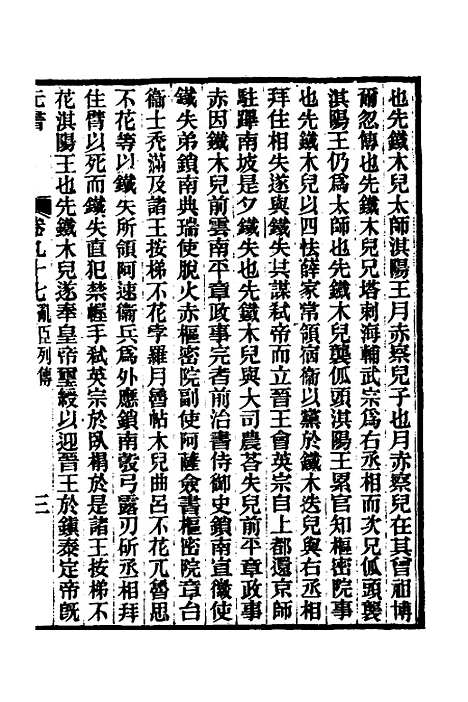 也先鐵木兒太師淇陽王月赤察兒子也月赤察兒在其曾祖博
爾忽傳也先鐵木兒兄塔刺海輔武宗爲右丞相而次兄㼌頭襲
淇陽王仍爲太師也先鐵木兒襲㼌頭淇陽王累官知樞密院事
也先鐵木兒以四怯薛家常領宿衞以黨於鐵木迭兒與右丞相
拜住相失遂與鐵失共謀弑帝而立晉王會英宗自上都還京師
駐蹕南坡是夕鐵失也先鐵木兒與大司農荅失兒前平章政事
赤因鐵木兒前雲南平章政事完者前治書侍御史鎖南宣徽使
鐵失弟鎖南典瑞使脫火赤樞密院副使阿薩僉書樞密院章台
衞士禿滿及諸王按梯不花孛羅月魯帖木兒曲呂不花兀魯思
不花等以鐵失所領阿速衞兵爲外應鎖南發弓露刃斫丞相拜
住臂以死而鐵失直犯禁幄手弑英宗於臥榻於是諸王按梯不
花淇陽王也先鐵木兒遂奉皇帝璽綬以迎晉王於鎭泰定帝旣
元書 卷九十七 亂臣列傳 三